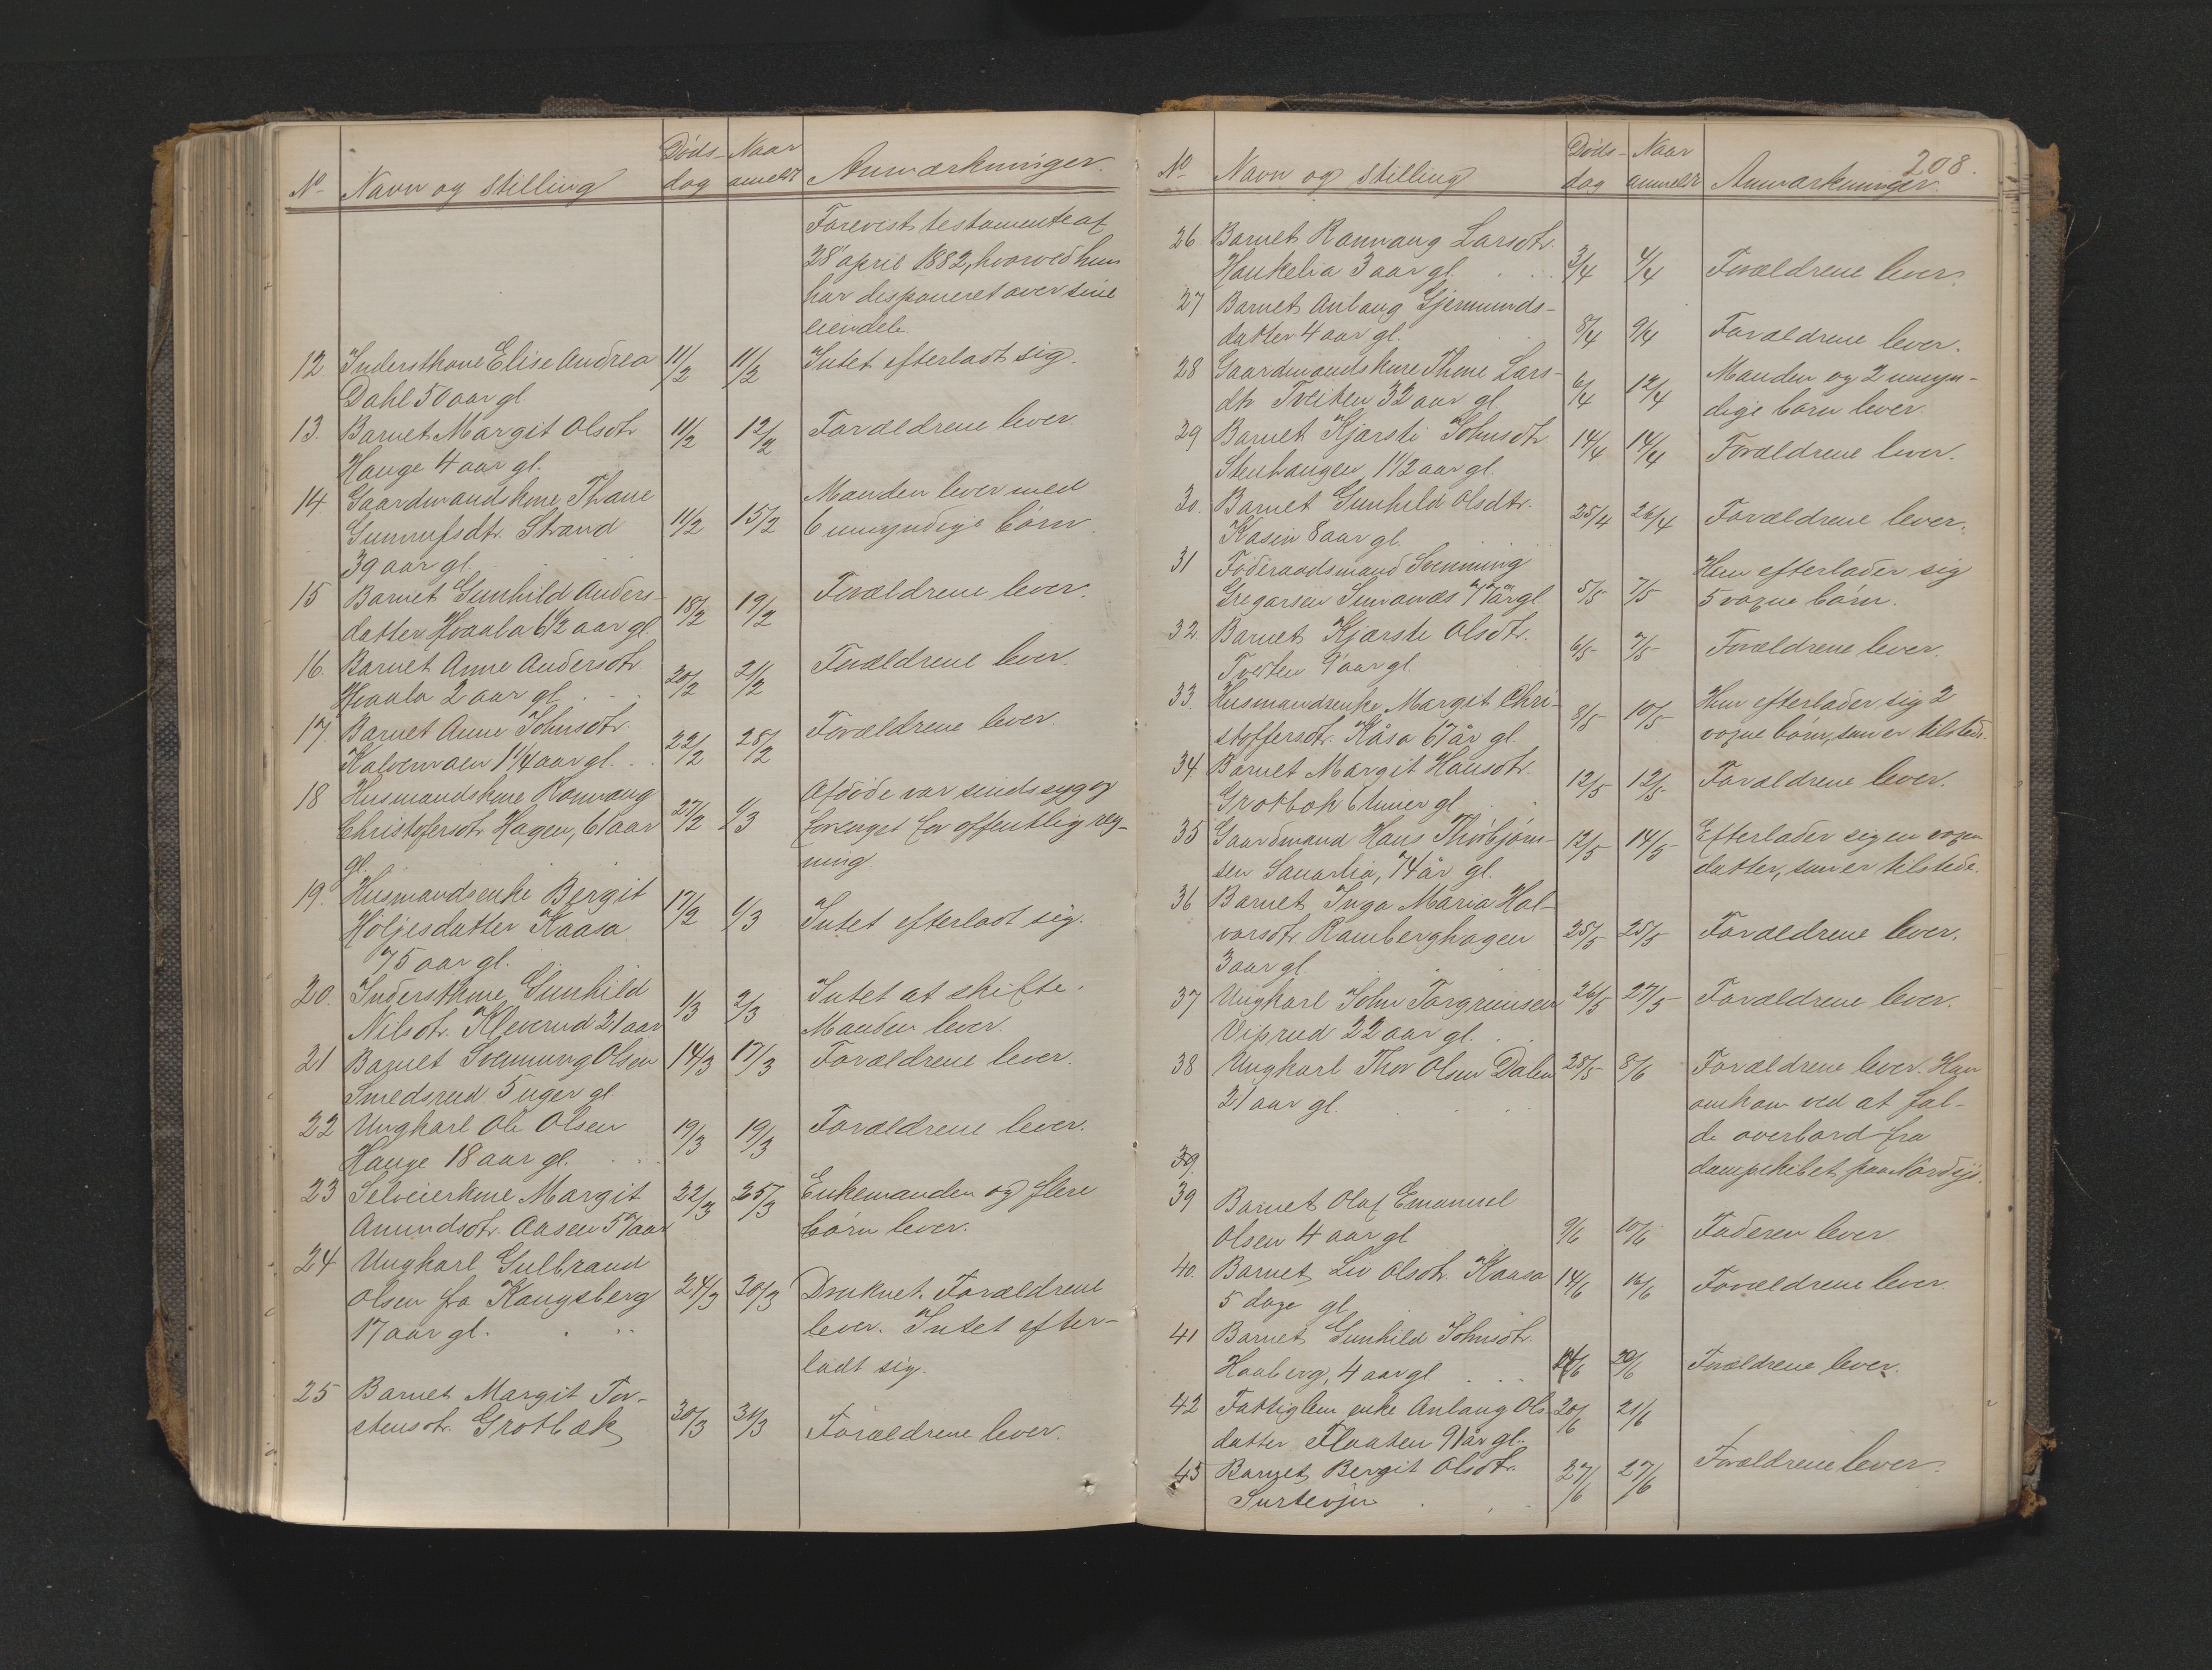 No Navn og stilling Døds- dag Naar anmeldt Anmærkninger.
Forevist testamente af
28' april 1882, hvorved hun
har disponeret over sine
eiendele
12 Inderstkone Elise Andrea 11/2 11/2 Intet efterladt sig.
Dahl 50 aar gl.
13. Barnet Margit Olsdtr. 11/2 12/2 Forældrene lever
Hauge 4 aar gl.
14 Gaardmandskone Thone Manden lever med
Gunnufsdtr. Strand 11/2 15/2 6 umyndige børn.
39 aar gl.
15 Barnet Gunhild Anders- 18/2 19/2 Forældrene lever.
datter Hvaala 6 1/2 aar gl.
16. Barnet Anne Andersdtr. 20/2 21/2 Forældrene lever.
Hvaala 2 aar gl.
17. Barnet Anne Johnsdtr. 22/2 28/2 Forældrene lever.
Kalvemoen 1 1/4 aar gl.
18 Husmandskone Ronnaug 27/2 1/3 Afdøde var sindssyg og
Christofersdtr. Hagen, 61 aar forsørget for offentlig reg-
gl. ning.
19. Husmandsenke Bergit 17/2 1/3 Intet efterladt sig.
Høljesdatter Kaasa
75 aar gl.
20. Inderstkone Gunhild 1/3 2/3 Intet at skifte.
Nilsdtr. Kleverud 21 aar Manden lever.
21 Barnet Svennung Olsen 14/3 17/3 Forældrene lever.
Smedsrud 5 uger gl
22 Ungkarl Ole Olsen 19/3 19/3 Forældrene lever.
Hauge 18 aar gl.
23 Selveierkone Margit 22/3 25/3 Enkemanden og flere
Amundsdtr. Aasen 57 aar børn lever.
24 Ungkarl Gulbrand
Olsen fra Kongsberg 24/3 30/3 Druknet. Forældrene
17 aar gl. lever. Intet efter-
ladt sig.
25 Barnet Margit Tor-
stensdtr. Grotbæk 30/3 31/3 Forældrene lever.
208.
No Navn og stilling Døds- dag Naar anmeldt Anmærkninger.
26. Barnet Ronnaug Larsdtr.
Haukelia 3 aar gl. 3/4 4/4 Forældrene lever.
27 Barnet Anlaug Gjermunds-
datter 4 aar gl. 8/4 9/4 Forældrene lever.
28 Gaardmandskone Thone Lars- 6/4 12/4 Manden og 2 umyn-
dtr Tveiten 32 aar gl. dige børn lever.
29 Barnet Kjersti Johnsdtr. 14/4 14/4 Forældrene lever.
Stenhaugen 1 1/2 aar gl.
30. Barnet Gunhild Olsdtr. 25/4 26/4 Forældrene lever.
Kasin 8 aar gl.
31 Føderaadsmand Svennung Han efterlader sig
Gregarsen 77 år gl. 5/5 7/5 5 voxne børn.
32. Barnet Kjersti Olsdtr. 6/5 7/5 Forældrene lever.
9 aar gl
33. Husmandsenke Margit Chri- 8/5 10/5 Hun efterlader sig 2
stoffersdtr. Kåsa 67 år gl. voxne børn, som er tilstede.
34 Barnet Margit Hansdtr. 12/5 12/5 Forældrene lever.
Grotbæk 6 timer gl
35 Gaardmand Hans Thorbjørn- 12/5 14/5 Efterlader sig en voxen
sen Sanarlia, 74 år gl. datter, som er tilstede.
36 Barnet Inga Maria Hal-
vorsdtr. Ramberghagen 25/5 25/5 Forældrene lever.
3 aar gl
37 Ungkarl John Torgrimsen 26/5 27/5 Forældrene lever.
Viprud 22 aar gl.
38 Ungkarl Thor Olsen Dalen 28/5 8/6 Forældrene lever. Han
21 aar gl. omkom ved at fal-
de overbord fra
39. dampskibet paa Nordsjø.
39 Barnet Olaf Emanuel
Olsen 4 aar gl 9/6 10/6 Faderen lever
40. Barnet Liv Olsdtr. Kaasa 14/6 16/6 Forældrene lever.
5 dage gl
41 Barnet Gunhild Johnsdtr.
Haaberg, 4 aar gl 14/6 20/6 Forældrene lever.
42 Fattiglem enke Anlaug Ols- 20/6 21/6
datter Flaaten 91 år gl.
43 Barnet Bergit Olsdtr. 27/6 27/6 Forældrene lever.
Surtevju